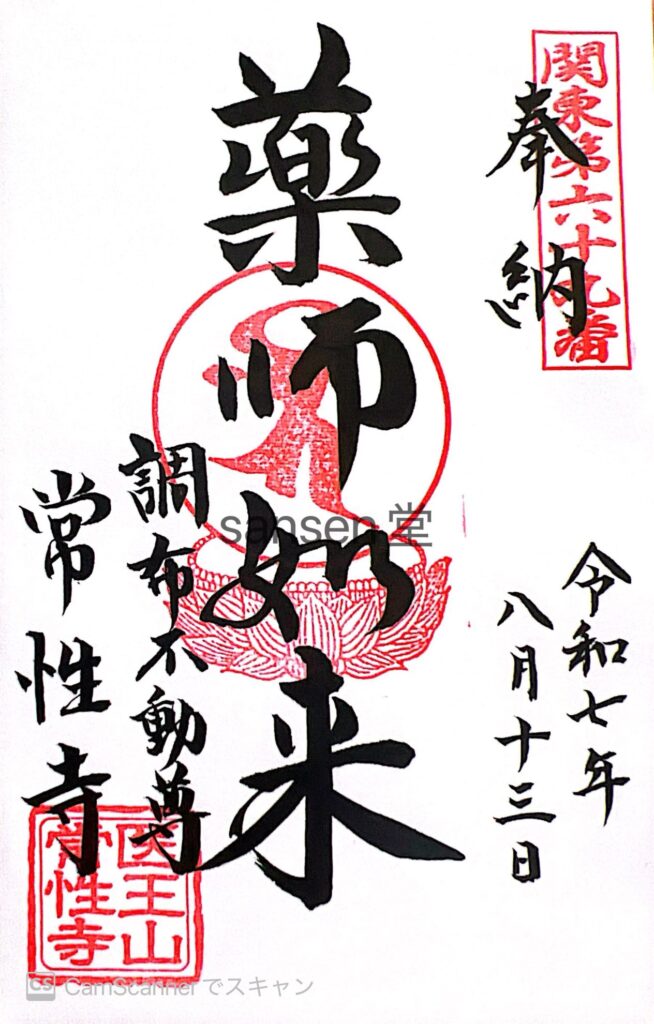 関東第六十九番
奉納
令和七年
八月十三日
薬師如来
調布不動尊
常性寺
医王山
常性寺
sansen堂
CS CamScannerでスキャン